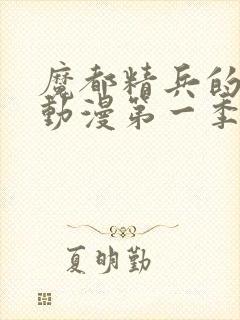 魔都精兵的
動漫第一季
夏明勤